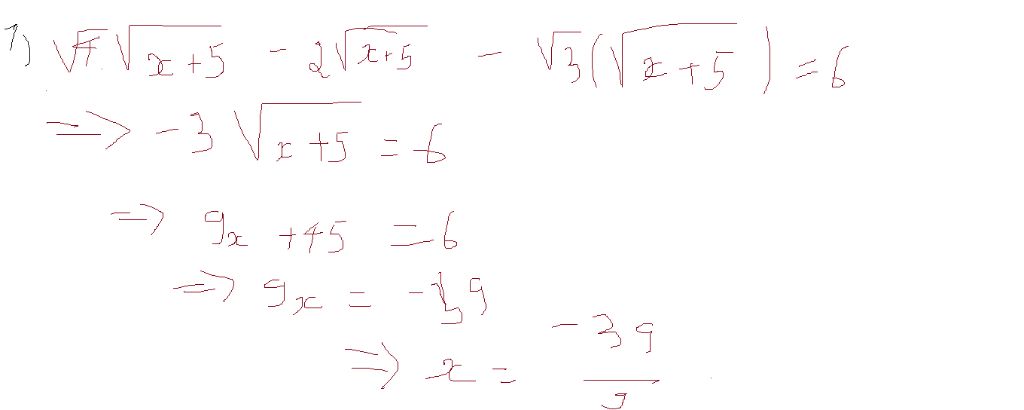 1) √4 √(x+5) - 2√(x+5) - √3(√(x+5)) = 6
=> -3√(x+5) = 6
=> 9x + 45 = 6
=> 9x = -39
=> x = -39/9